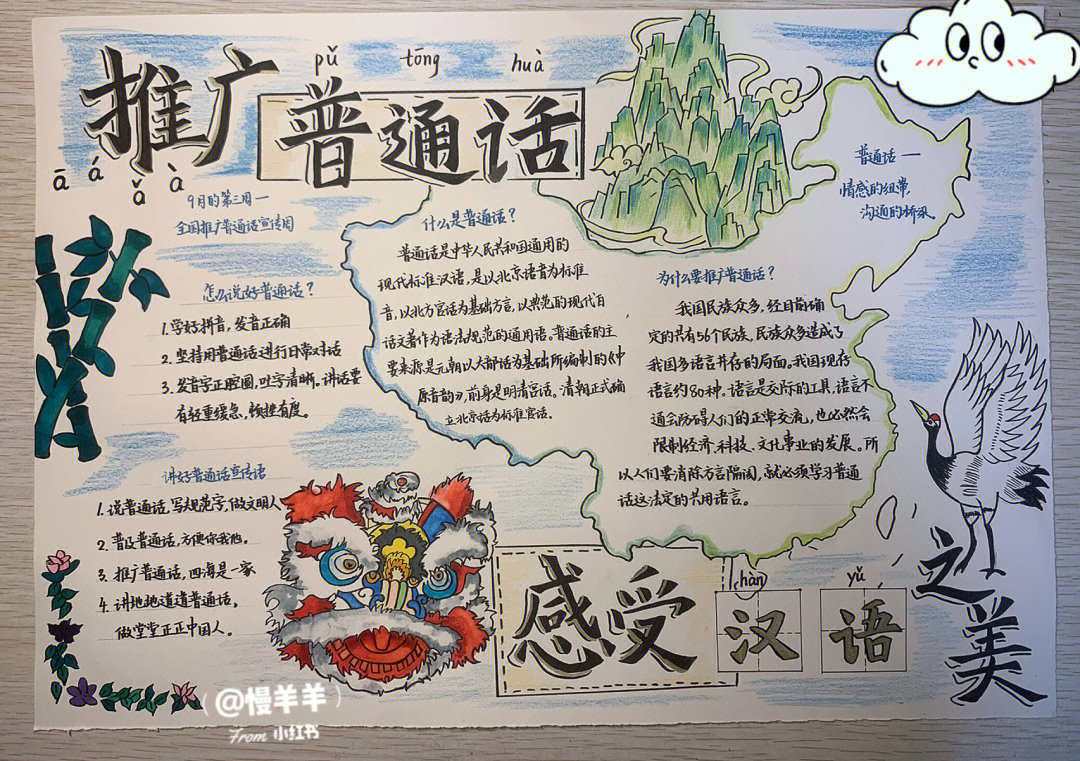 推广普通话
pǔ tōng huà
ā á ǎ à
9月的第三周一
全国推广普通话宣传周
怎么说好普通话？
1.学好拼音，发音正确
2.坚持用普通话进行日常对话
3.发音字正腔圆，吐字清晰。讲话要
有轻重缓急、顿挫有度。
讲好普通话宣传话
1.说普通话，写规范字，做文明人
2.普及普通话，方便你我他。
3.推广普通话，四海是一家
4.讲地地道道普通话。
做堂堂正正中国人。
什么是普通话？
普通话是中华人民共和国通用的
现代标准汉语，是以北京语音为标准
音，以北方官话为基础方言，以典范的现代白
话文著作为语法规范的通用语。普通话的主
要来源是元朝以大都话为基础所编制的《中
原音韵》，前身是明清官话。清朝正式确
立北京话为标准官话。
普通话一
情感的纽带，
沟通的桥梁
为什么要推广普通话？
我国民族众多，经目前确
定的共有56个民族，民族众多造成了
我国多语言并存的局面。我国现存
语言约80种。语言是交际的工具，语言不
通会防碍人们的正常交流，也必然会
限制经济、科技、文化事业的发展。所
以人们要消除方言隔阂，就必须学习普通
话这法定的共用语言。
hàn yǔ
感受汉语之美
@慢羊羊
From 小红书